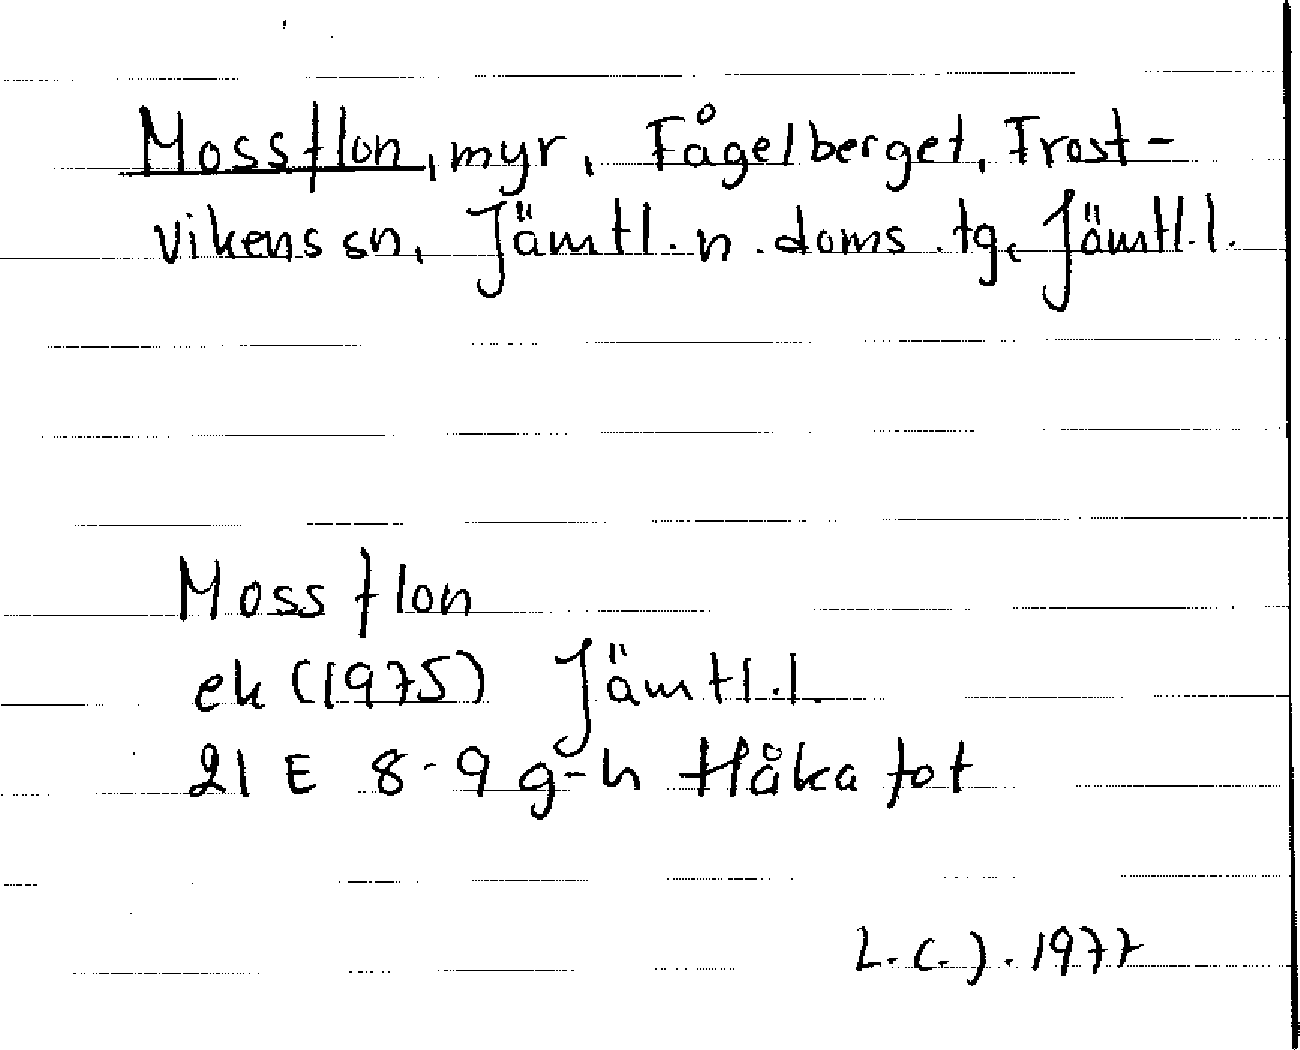 Mossflon, myr, Fågelberget, Frost-
vikens sn, Jämtl. n. doms. tg, Jämtl. l.
Mossflon
ek (1975) Jämtl. l.
21 E 8-9 g-h Håkafot
L.C.J. 1977